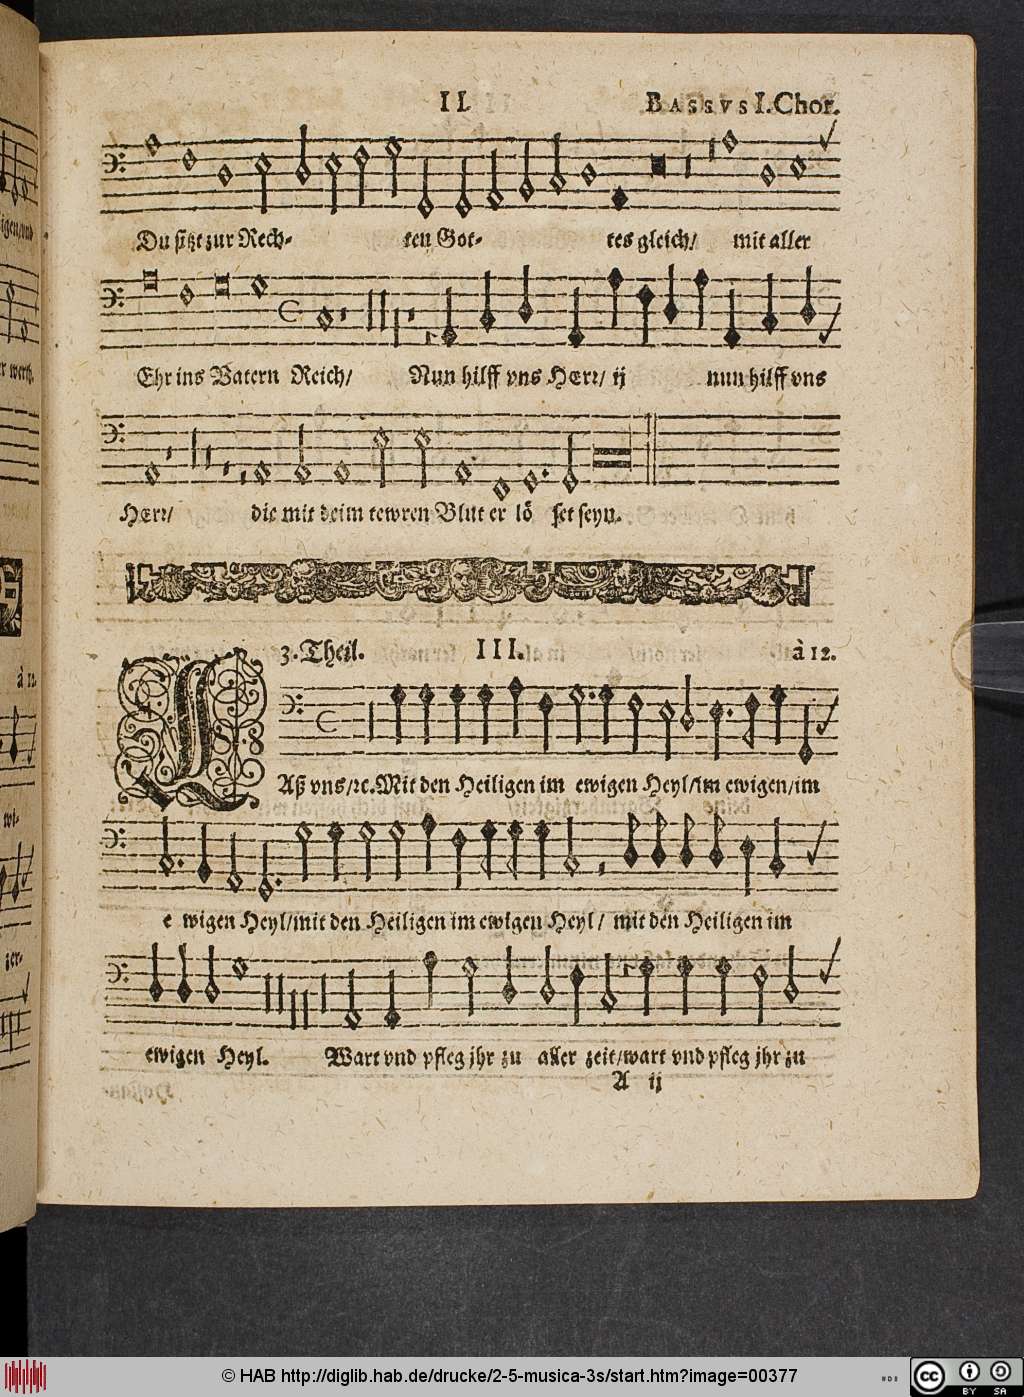 II. BASSVS I. Chor.
Du sitzt zur Rech- ten Got- tes gleich/ mit aller
Ehr ins Vatern Reich/ Nun hilff vns HErr/ ij nun hilff vns
HErr/ die mit deim tewren Blut er lö set seyn.
3. Theil. III. à 12.
LAß vns/ꝛc. Mit den Heiligen im ewigen Heyl/im ewigen/im
e wigen Heyl/mit den Heiligen im ewigen Heyl/ mit den Heiligen im
ewigen Heyl. Wart vnd pfleg jhr zu aller zeit/wart vnd pfleg jhr zu
A ij
à 12.
wi-
zer-
© HAB http://diglib.hab.de/drucke/2-5-musica-3s/start.htm?image=00377
cc BY SA